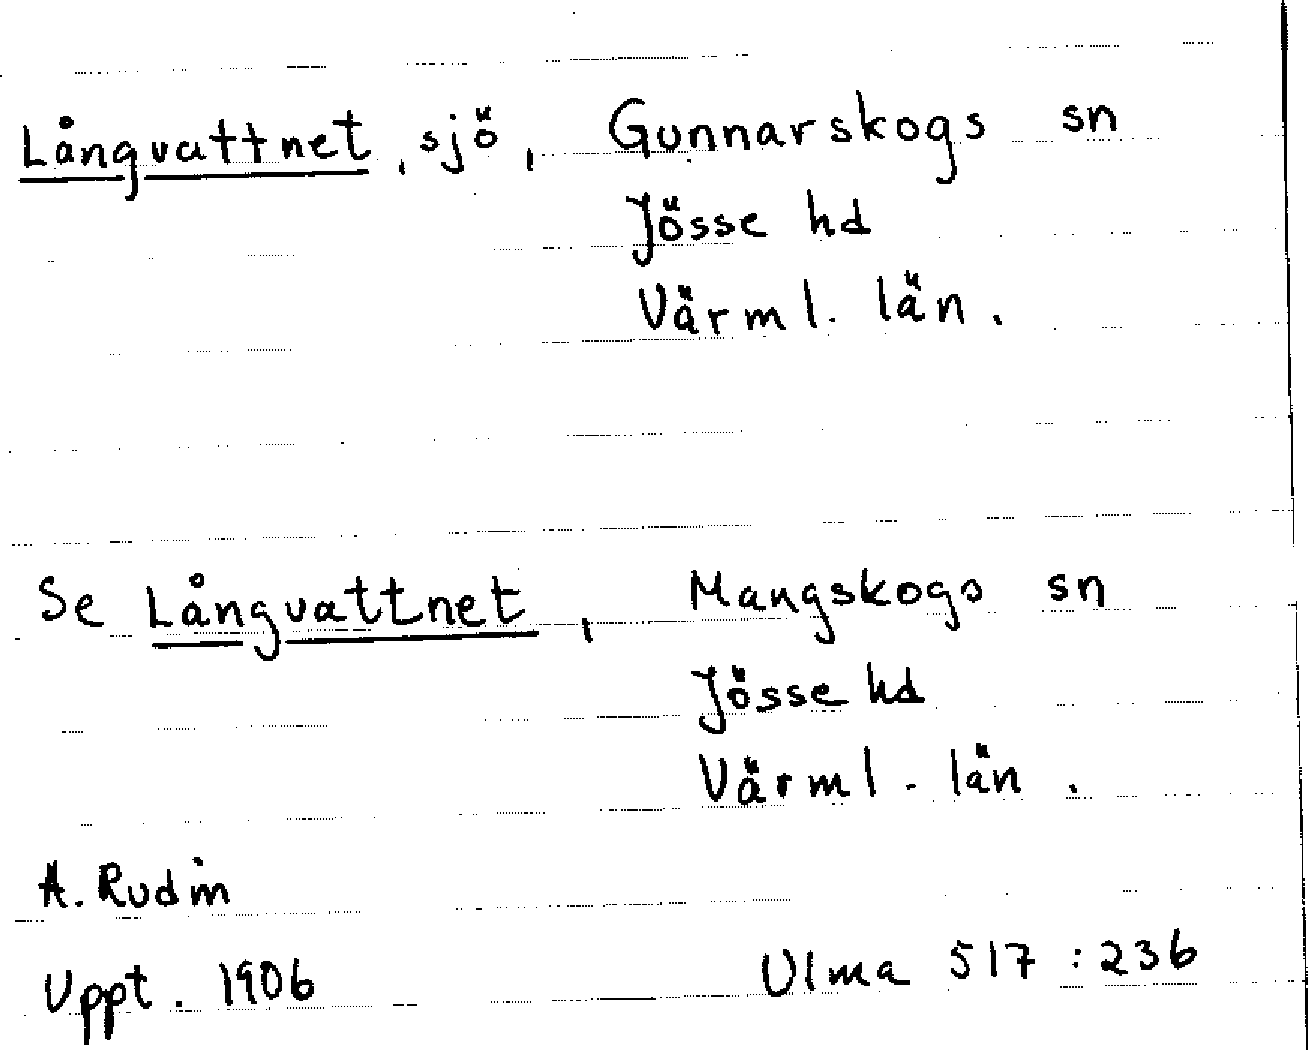 Långvattnet, sjö, Gunnarskogs sn
Jösse hd
Värml. län.
Se Långvattnet, Mangskogs sn
Jösse hd
Värml. län.
A. Rudin
Uppt. 1906 Ulma 517:236